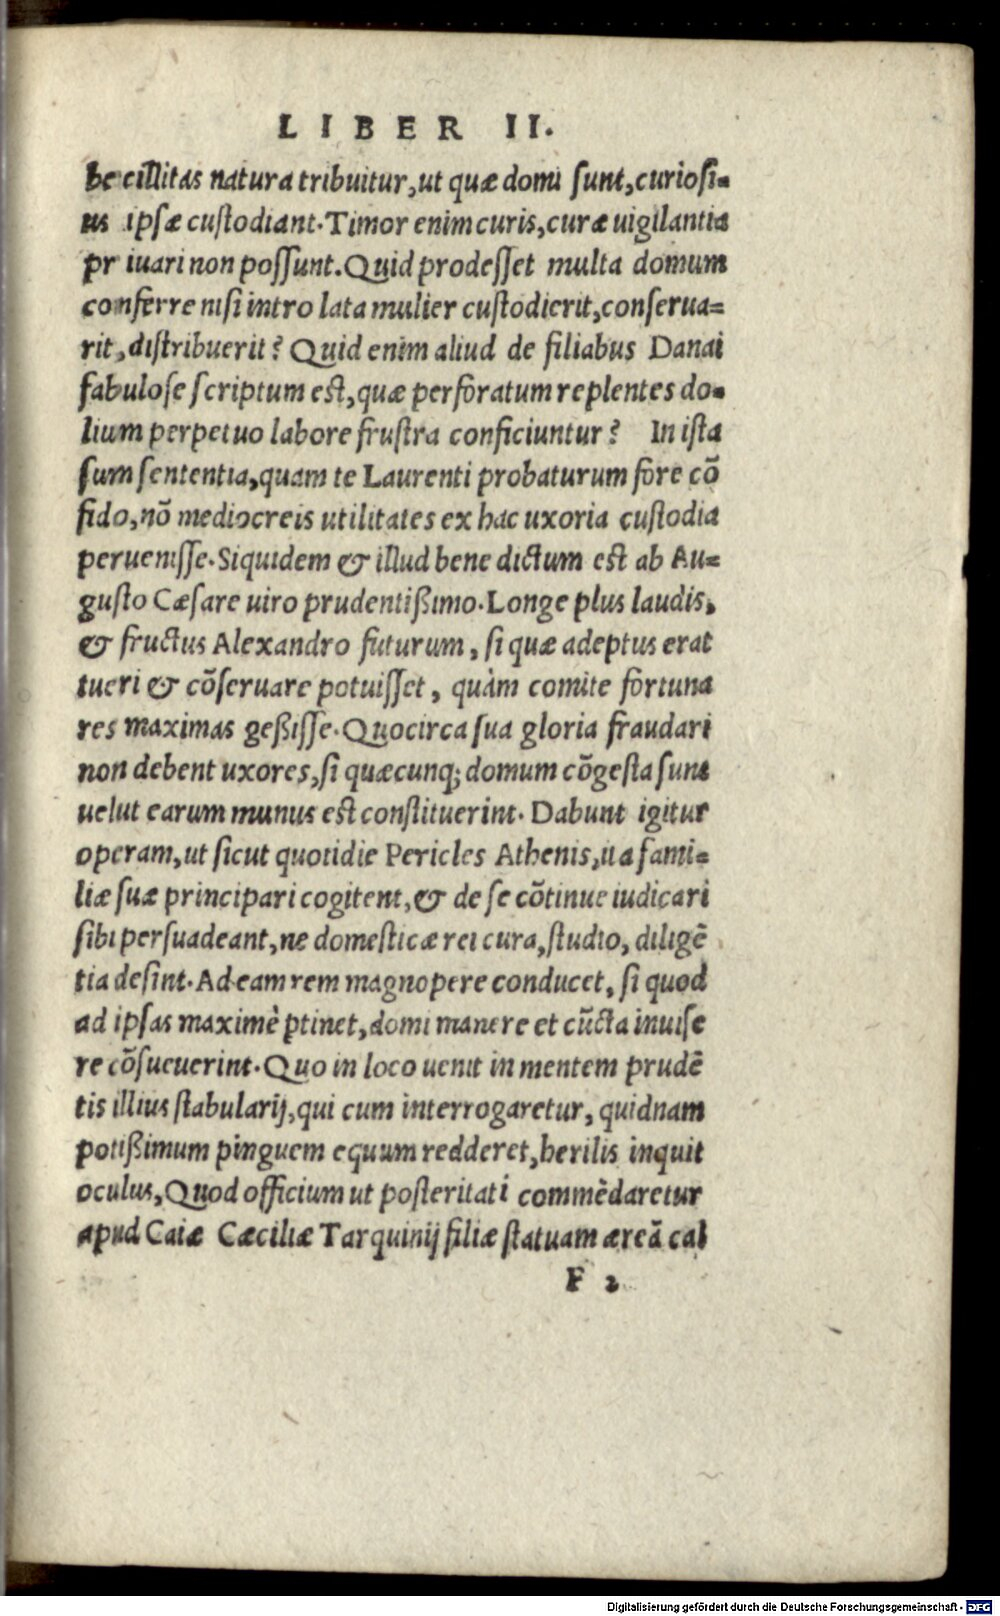 LIBER II.
becillitas natura tribuitur, ut quæ domi sunt, curiosi-
us ipsæ custodiant. Timor enim curis, curæ uigilantia
priuari non possunt. Quid prodesset multa domum
conferre nisi intro lata mulier custodierit, conserua=
rit, distribuerit? Quid enim aliud de filiabus Danai
fabulose scriptum est, quæ perforatum replentes do-
lium perpetuo labore frustra conficiuntur? In ista
sum sententia, quam te Laurenti probaturum fore cõ
fido, nõ mediocreis utilitates ex hac uxoria custodia
peruenisse. Siquidem & illud bene dictum est ab Au=
gusto Cæsare uiro prudentißimo. Longe plus laudis,
& fructus Alexandro futurum, si quæ adeptus erat
tueri & cõseruare potuisset, quàm comite fortuna
res maximas geßisse. Quocirca sua gloria fraudari
non debent uxores, si quæcunq; domum cõgesta sunt
uelut earum munus est constituerint. Dabunt igitur
operam, ut sicut quotidie Pericles Athenis, ita fami=
liæ suæ principari cogitent, & de se cõtinue iudicari
sibi persuadeant, ne domesticæ rei cura, studio, diligẽ
tia desint. Ad eam rem magnopere conducet, si quod
ad ipsas maximè ptinet, domi manere et cũcta inuise
re cõsueuerint. Quo in loco uenit in mentem prudẽ
tis illius stabularij, qui cum interrogaretur, quidnam
potißimum pinguem equum redderet, herilis inquit
oculus, Quod officium ut posteritati commẽdaretur
apud Caiæ Cæciliæ Tarquinij filiæ statuam æreã cal
F 2
Digitalisierung gefördert durch die Deutsche Forschungsgemeinschaft - DFG